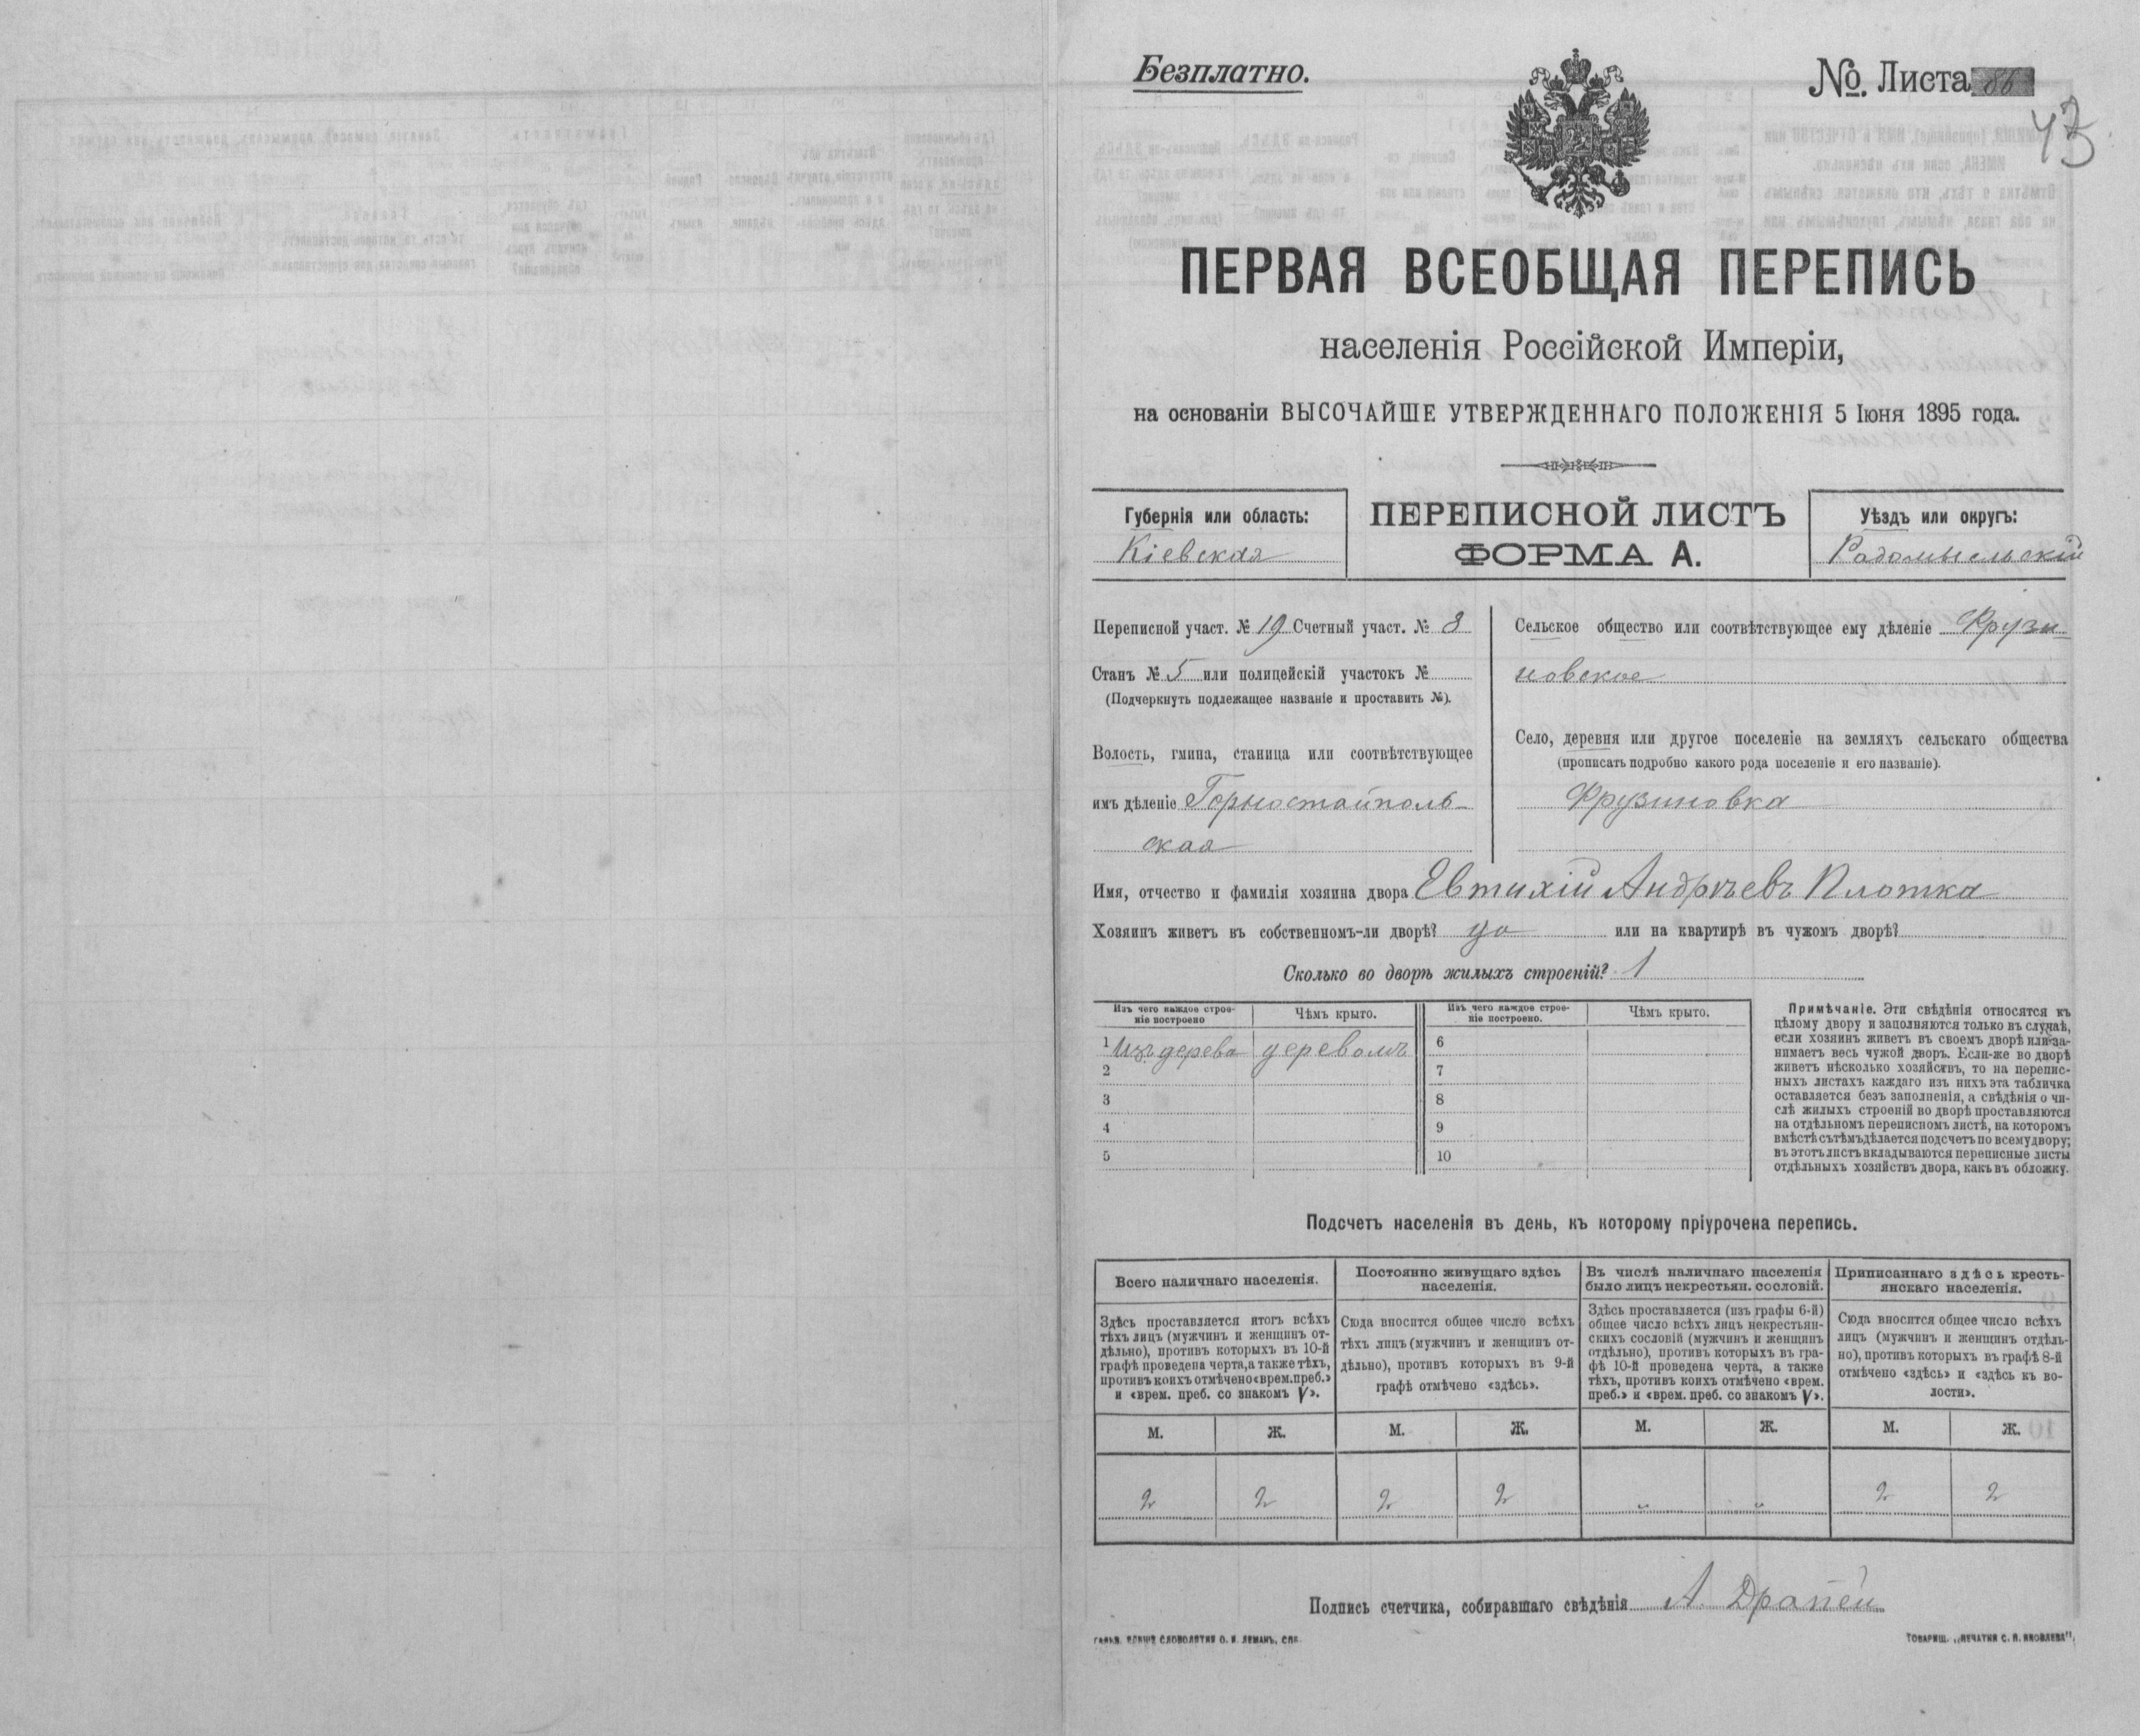 Безплатно.
№. Листа 86
43
ПЕРВАЯ ВСЕОБЩАЯ ПЕРЕПИСЬ
населенія Россійской Имперіи,
на основаніи ВЫСОЧАЙШЕ УТВЕРЖДЕННАГО ПОЛОЖЕНІЯ 5 Іюня 1895 года.
Губернія или область:
Кіевская
ПЕРЕПИСНОЙ ЛИСТЪ
ФОРМА А.
Уѣздъ или округъ:
Радомысльскій
Переписной участ. № 19 Счетный участ. № 8
Станъ № 5 или полицейскій участокъ №
(Подчеркнуть подлежащее названіе и проставить №).
Волость, гмина, станица или соотвѣтствующее
имъ дѣленіе Горностайполь-
ская
Сельское общество или соотвѣтствующее ему дѣленіе Фрузи-
новское
Село, деревня или другое поселеніе на земляхъ сельскаго общества
(прописать подробно какого рода поселеніе и его названіе).
Фрузиновка
Имя, отчество и фамилія хозяина двора Евтихій Андрѣевъ Плотка
Хозяинъ живетъ въ собственномъ-ли дворѣ? да или на квартирѣ въ чужомъ дворѣ?
Сколько во дворѣ жилыхъ строеній? 1
Изъ чего каждое строе-
ніе построено
Чѣмъ крыто.
Изъ чего каждое строе-
ніе построено.
Чѣмъ крыто.
1 Изъ дерева деревомъ 6
2 7
3 8
4 9
5 10
Примѣчаніе. Эти свѣдѣнія относятся къ
цѣлому двору и заполняются только въ случаѣ,
если хозяинъ живетъ въ своемъ дворѣ или за-
нимаетъ весь чужой дворъ. Если-же во дворѣ
живетъ нѣсколько хозяйствъ, то на перепис-
ныхъ листахъ каждаго изъ нихъ эта табличка
оставляется безъ заполненія, а свѣдѣнія о чи-
слѣ жилыхъ строеній во дворѣ проставляются
на отдѣльномъ переписномъ листѣ, на которомъ
вмѣстѣ съ тѣмъ дѣлается подсчетъ по всему двору;
въ этотъ листъ вкладываются переписные листы
отдѣльныхъ хозяйствъ двора, какъ въ обложку.
Подсчетъ населенія въ день, къ которому пріурочена перепись.
Всего наличнаго населенія.
Здѣсь проставляется итогъ всѣхъ
тѣхъ лицъ (мужчинъ и женщинъ от-
дѣльно), противъ которыхъ въ 10-й
графѣ проведена черта, а также тѣхъ,
противъ коихъ отмѣчено «врем. преб.»
и «врем. преб. со знакомъ V».
Постоянно живущаго здѣсь
населенія.
Сюда вносится общее число всѣхъ
тѣхъ лицъ (мужчинъ и женщинъ от-
дѣльно), противъ которыхъ въ 9-й
графѣ отмѣчено «здѣсь».
Въ числѣ наличнаго населенія
было лицъ некрестьян. сословій.
Здѣсь проставляется (изъ графы 6-й)
общее число всѣхъ лицъ некрестьян-
скихъ сословій (мужчинъ и женщинъ
отдѣльно), противъ которыхъ въ гра-
фѣ 10-й проведена черта, а также
тѣхъ, противъ коихъ отмѣчено «врем.
преб.» и «врем. преб. со знакомъ V».
Приписаннаго здѣсь кресть-
янскаго населенія.
Сюда вносится общее число всѣхъ
лицъ (мужчинъ и женщинъ отдѣль-
но), противъ которыхъ въ графѣ 8-й
отмѣчено «здѣсь» и «здѣсь къ во-
лости».
М. Ж. М. Ж. М. Ж. М. Ж.
2 2 2 2 " " 2 2
Подпись счетчика, собиравшаго свѣдѣнія А. Драпей
СЛОВОЛИТНИ О. И. ЛЕМАНЪ, СПБ.
ТОВАРИЩ. „ПЕЧАТНЯ С. П. ЯКОВЛЕВА".